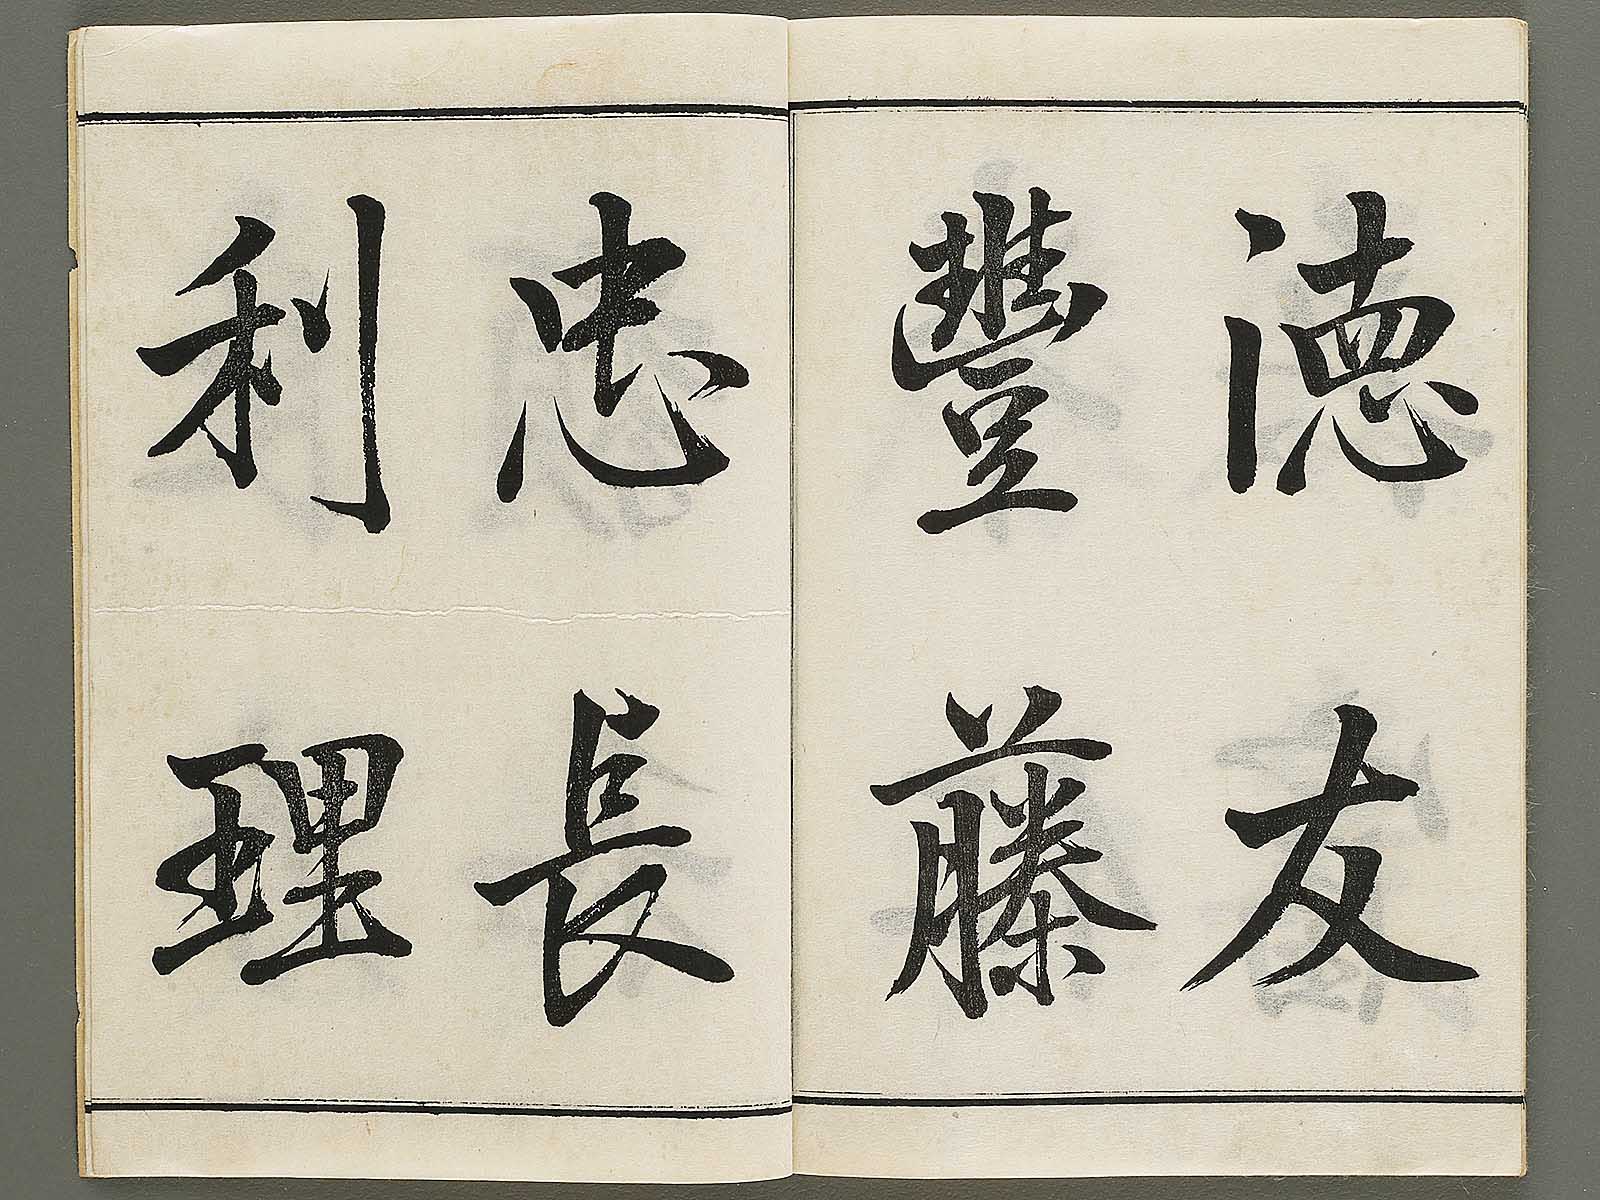 德友
豐藤
忠長
利理